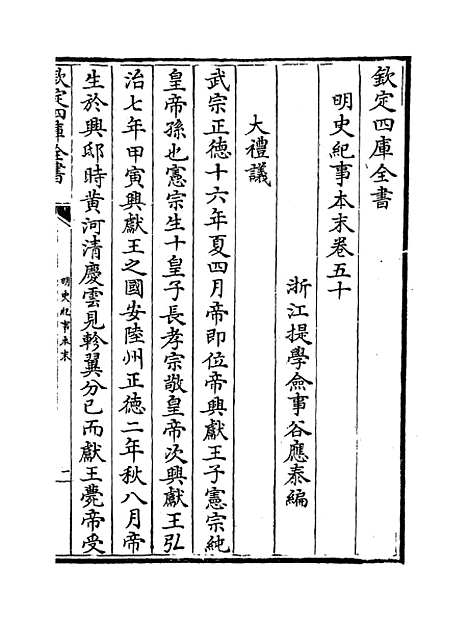 欽定四庫全書
明史紀事本末卷五十
浙江提學僉事谷應泰編
大禮議
武宗正德十六年夏四月帝即位帝興獻王子憲宗純
皇帝孫也憲宗生十皇子長孝宗敬皇帝次興獻王弘
治七年甲寅興獻王之國安陸州正德二年秋八月帝
生於興邸時黄河清慶雲見軫翼分已而獻王薨帝受
欽定四庫全書
明史紀事本末